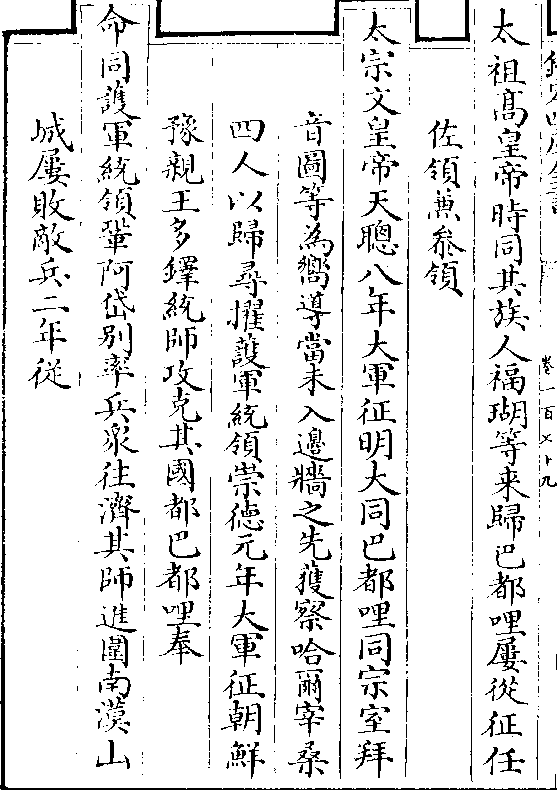 卷一百七十九
太祖高皇帝時同其族人福瑚等来歸巴都哩屢從征任
佐領兼叅領
太宗文皇帝天聰八年大軍征明大同巴都哩同宗室拜
音圖等為嚮導當未入邊牆之先獲察哈爾宰桑
四人以歸尋擢護軍統領崇德元年大軍征朝鮮
豫親王多鐸統師攻克其國都巴都哩奉
命同護軍統領鞏阿岱别率兵衆往濟其師進圍南漢山
城屢敗敵兵二年從